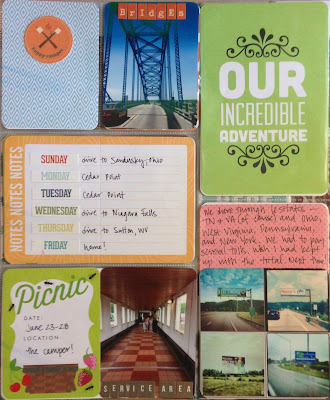 BRIDGES
OUR
INCREDIBLE
ADVENTURE
NOTES NOTES NOTES
SUNDAY drive to Sandusky, Ohio
MONDAY Cedar Point
TUESDAY Cedar Point
WEDNESDAY drive to Niagara Falls
THURSDAY drive to Sutton, WV
FRIDAY home!
We drove through 6 states -
TN & VA (of course) and Ohio,
West Virginia, Pennsylvania,
and New York. We had to pay
several tolls, wish I had kept
up with the total. Next time
Picnic
DATE:
June 23-28
LOCATION:
the camper!
SERVICE AREA